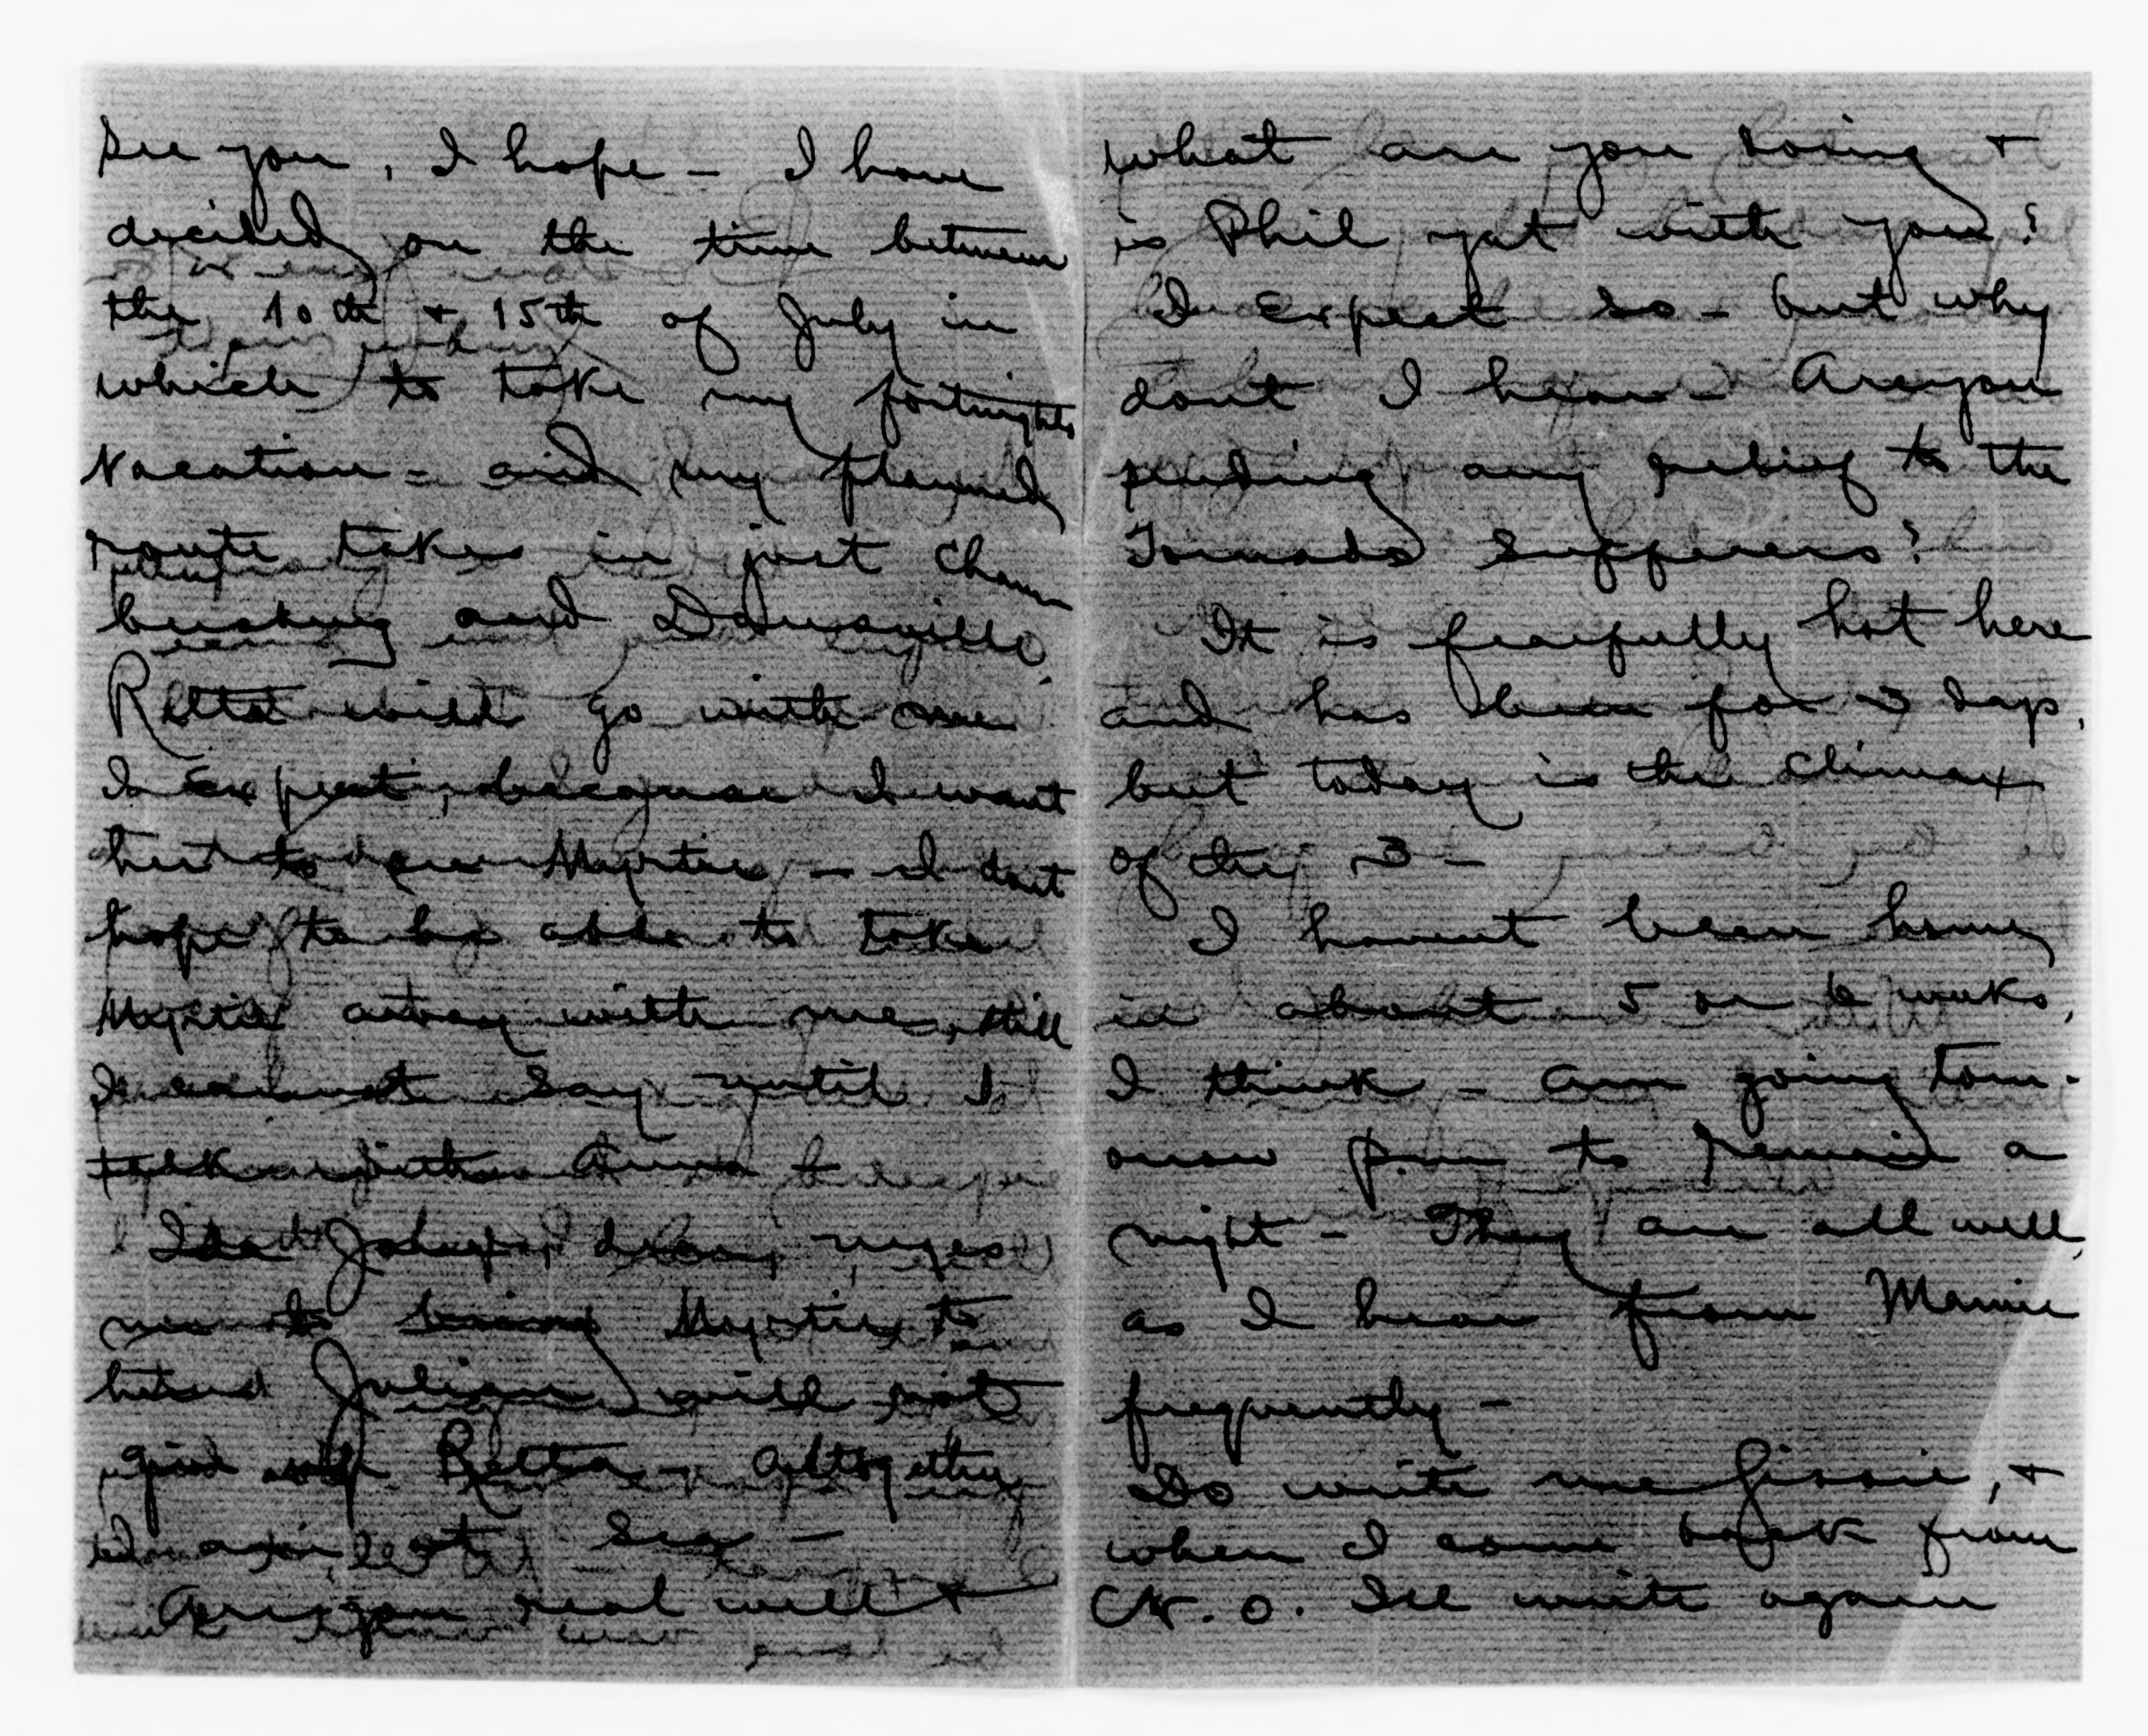 see you, I hope - I have
decided on the time between
the 10th & 15th of July in
which to take my fortnights
vacation - and my planned
route takes in just Cham
bersburg and Dansville.
Retta will go with me
I expect, because I want
her to see Myrtis - I dont
hope to be able to take
Myrtis away with me, still
I cannot say until I
talk with Anna &
Ida Jolly, dear, urges
me to bring Myrtis to
her and Julian will not
give up Retta - altogether
I am at sea -
Are you real well &
what are you doing &
is Phil yet with you?
I expect so - but why
dont I hear - Are you
sending any relief to the
Tornado Sufferers?
It is fearfully hot here
and has been for 3 days,
but today is the climax
of the 3 -
I havent been home
in about 5 or 6 weeks,
I think - am going tom-
orrow p.m to remain a
night - They are all well,
as I hear from Mamie
frequently -
Do write me Lissie, &
when I come back from
N. O. Ill write again